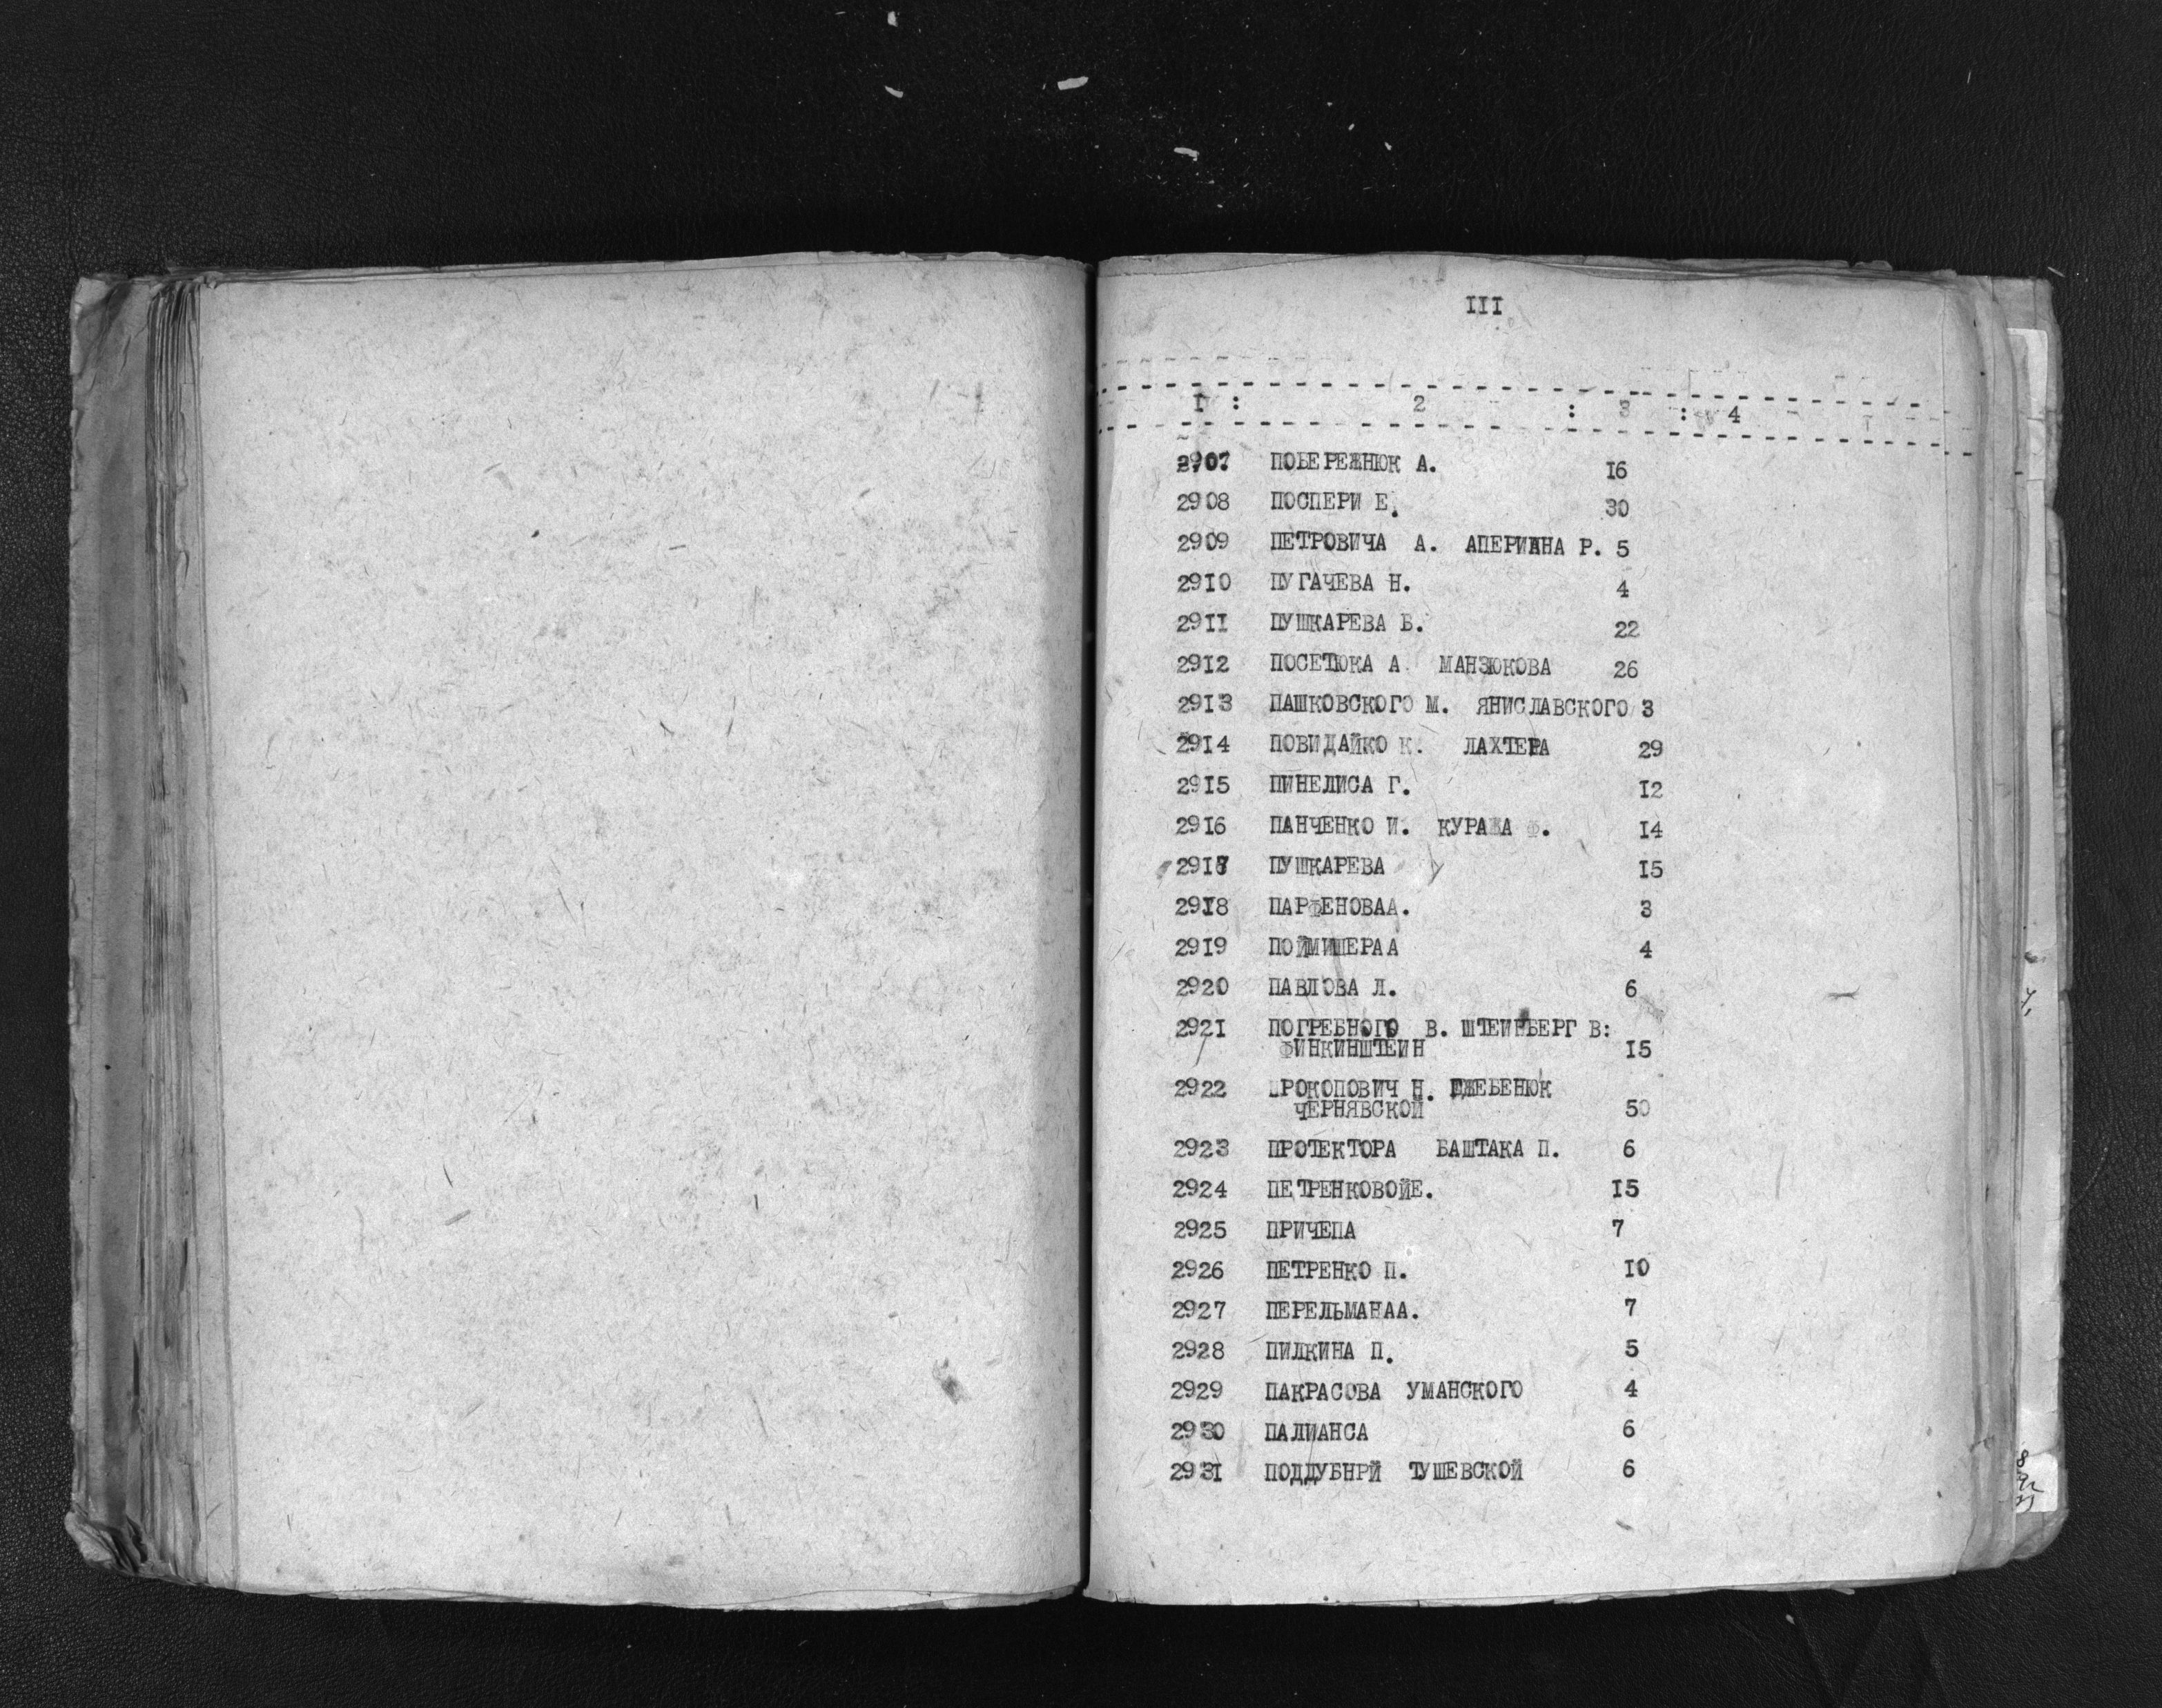 III
I : 2 : 3 : 4
2907 ПОБЕРЕЖНЮК А. I6
2908 ПОСПЕРИ Е. 30
2909 ПЕТРОВИЧА А. АПЕРИАНА Р. 5
29I0 ПУГАЧЕВА Н. 4
29II ПУШКАРЕВА В. 22
29I2 ПОСЕТЮКА А. МАНЗЮКОВА 26
29I3 ПАШКОВСКОГО М. ЯНИСЛАВСКОГО 3
29I4 ПОВИДАЙКО К. ЛАХТЕРА 29
29I5 ПИНЕЛИСА Г. I2
29I6 ПАНЧЕНКО И. КУРАЖА Ф. I4
29I7 ПУШКАРЕВА I5
29I8 ПАРФЕНОВАА. 3
29I9 ПОЙМИШЕРАА 4
2920 ПАВЛОВА Л. 6
292I ПОГРЕБНОГО В. ШТЕЙНБЕРГ В:
ФИНКИНШТЕИН I5
2922 ПРОКОПОВИЧ Н. ДЖЕБЕНЮК
ЧЕРНЯВСКОЙ 50
2923 ПРОТЕКТОРА БАШТАКА П. 6
2924 ПЕТРЕНКОВОЙЕ. I5
2925 ПРИЧЕПА 7
2926 ПЕТРЕНКО П. I0
2927 ПЕРЕЛЬМАНАА. 7
2928 ПИЛКИНА П. 5
2929 ПАКРАСОВА УМАНСКОГО 4
2930 ПАЛИАНСА 6
293I ПОДДУБНРЙ ТУШЕВСКОЙ 6